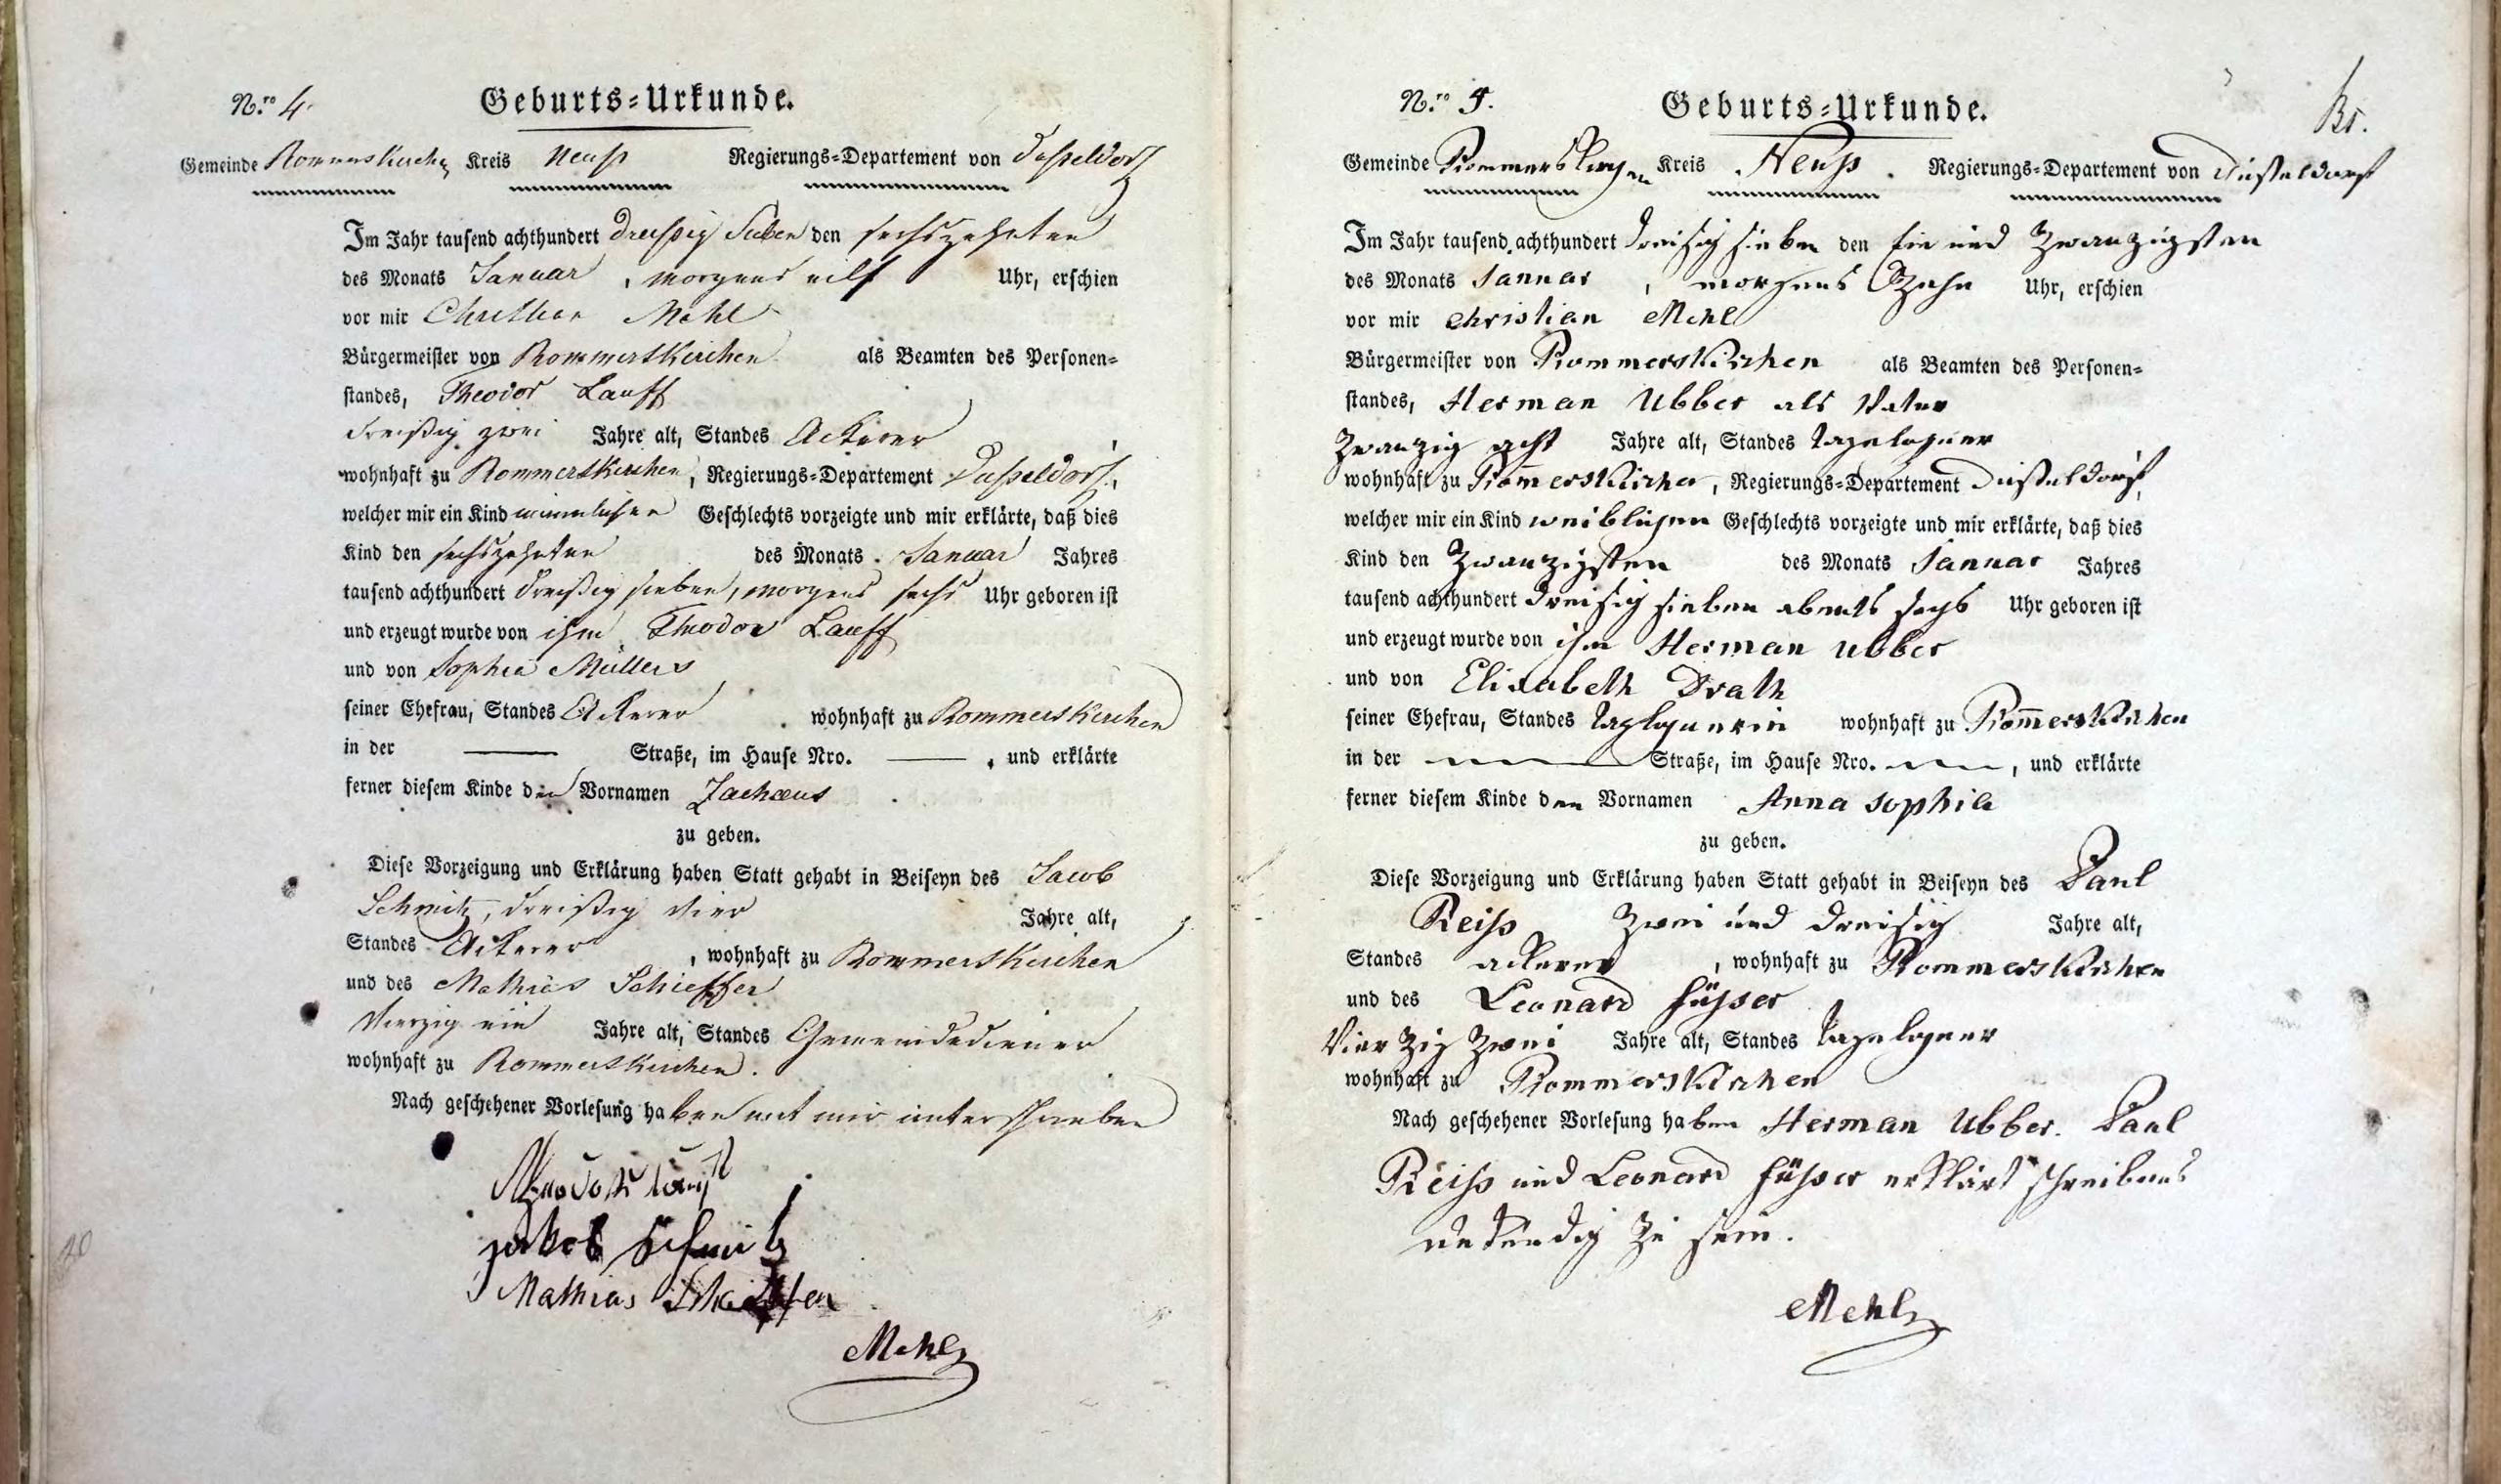 N.ro 4.
Geburts=Urkunde.
Gemeinde Rommerskirchen Kreis Neuß Regierungs=Departement von Düsseldorf
Im Jahr tausend achthundert dreißig sieben den sechszehnten
des Monats Januar, morgens eilf Uhr, erschien
vor mir Christian Mehl
Bürgermeister von Rommerskirchen als Beamten des Personen=
standes, Theodor Lauff
dreißig zwei Jahre alt, Standes Ackerer
wohnhaft zu Rommerskirchen, Regierungs=Departement Düsseldorf,
welcher mir ein Kind männlichen Geschlechts vorzeigte und mir erklärte, daß dies
Kind den sechszehnten des Monats Januar Jahres
tausend achthundert dreißig sieben, morgens sechs Uhr geboren ist
und erzeugt wurde von ihm Theodor Lauff
und von Sophia Müllers
seiner Ehefrau, Standes Ackerer wohnhaft zu Rommerskirchen
in der — Straße, im Hause Nro. —, und erklärte
ferner diesem Kinde den Vornamen Zachaeus
zu geben.
Diese Vorzeigung und Erklärung haben Statt gehabt in Beiseyn des Jacob
Schmitz, dreißig vier Jahre alt,
Standes Ackerer, wohnhaft zu Rommerskirchen
und des Mathias Schieffer
vierzig ein Jahre alt, Standes Gemeindediener
wohnhaft zu Rommerskirchen.
Nach geschehener Vorlesung haben mit mir unterschrieben
Theodor Lauff
Jakob Schmitz
Mathias Schieffer
Mehl
N.ro 5.
Geburts=Urkunde.
Gemeinde Rommerskirchen Kreis Neuß. Regierungs=Departement von Düsseldorf
Im Jahr tausend achthundert dreisig sieben den ein und zwanzigsten
des Monats Januar, morgens zehn Uhr, erschien
vor mir Christian Mehl
Bürgermeister von Rommerskirchen als Beamten des Personen=
standes, Herman Ubber als Vater
zwanzig acht Jahre alt, Standes Tagelohner
wohnhaft zu Rom̅erskirchen, Regierungs=Departement Düsseldorf,
welcher mir ein Kind weiblichen Geschlechts vorzeigte und mir erklärte, daß dies
Kind den zwanzigsten des Monats Januar Jahres
tausend achthundert dreisig sieben abends sechs Uhr geboren ist
und erzeugt wurde von ihm Herman Ubber
und von Elisabeth Drath
seiner Ehefrau, Standes Taglohnerin wohnhaft zu Rom̅erskirchen
in der — Straße, im Hause Nro. —, und erklärte
ferner diesem Kinde den Vornamen Anna Sophia
zu geben.
Diese Vorzeigung und Erklärung haben Statt gehabt in Beiseyn des Paul
Reiss zwei und dreisig Jahre alt,
Standes ackerer, wohnhaft zu Rommerskirchen
und des Leonard Füsser
Vierzig zwei Jahre alt, Standes Tagelohner
wohnhaft zu Rommerskirchen
Nach geschehener Vorlesung haben Herman Ubber. Paul
Reiss und Leonard Füsser erklärt schreibens
unkündig zu sein.
Mehl